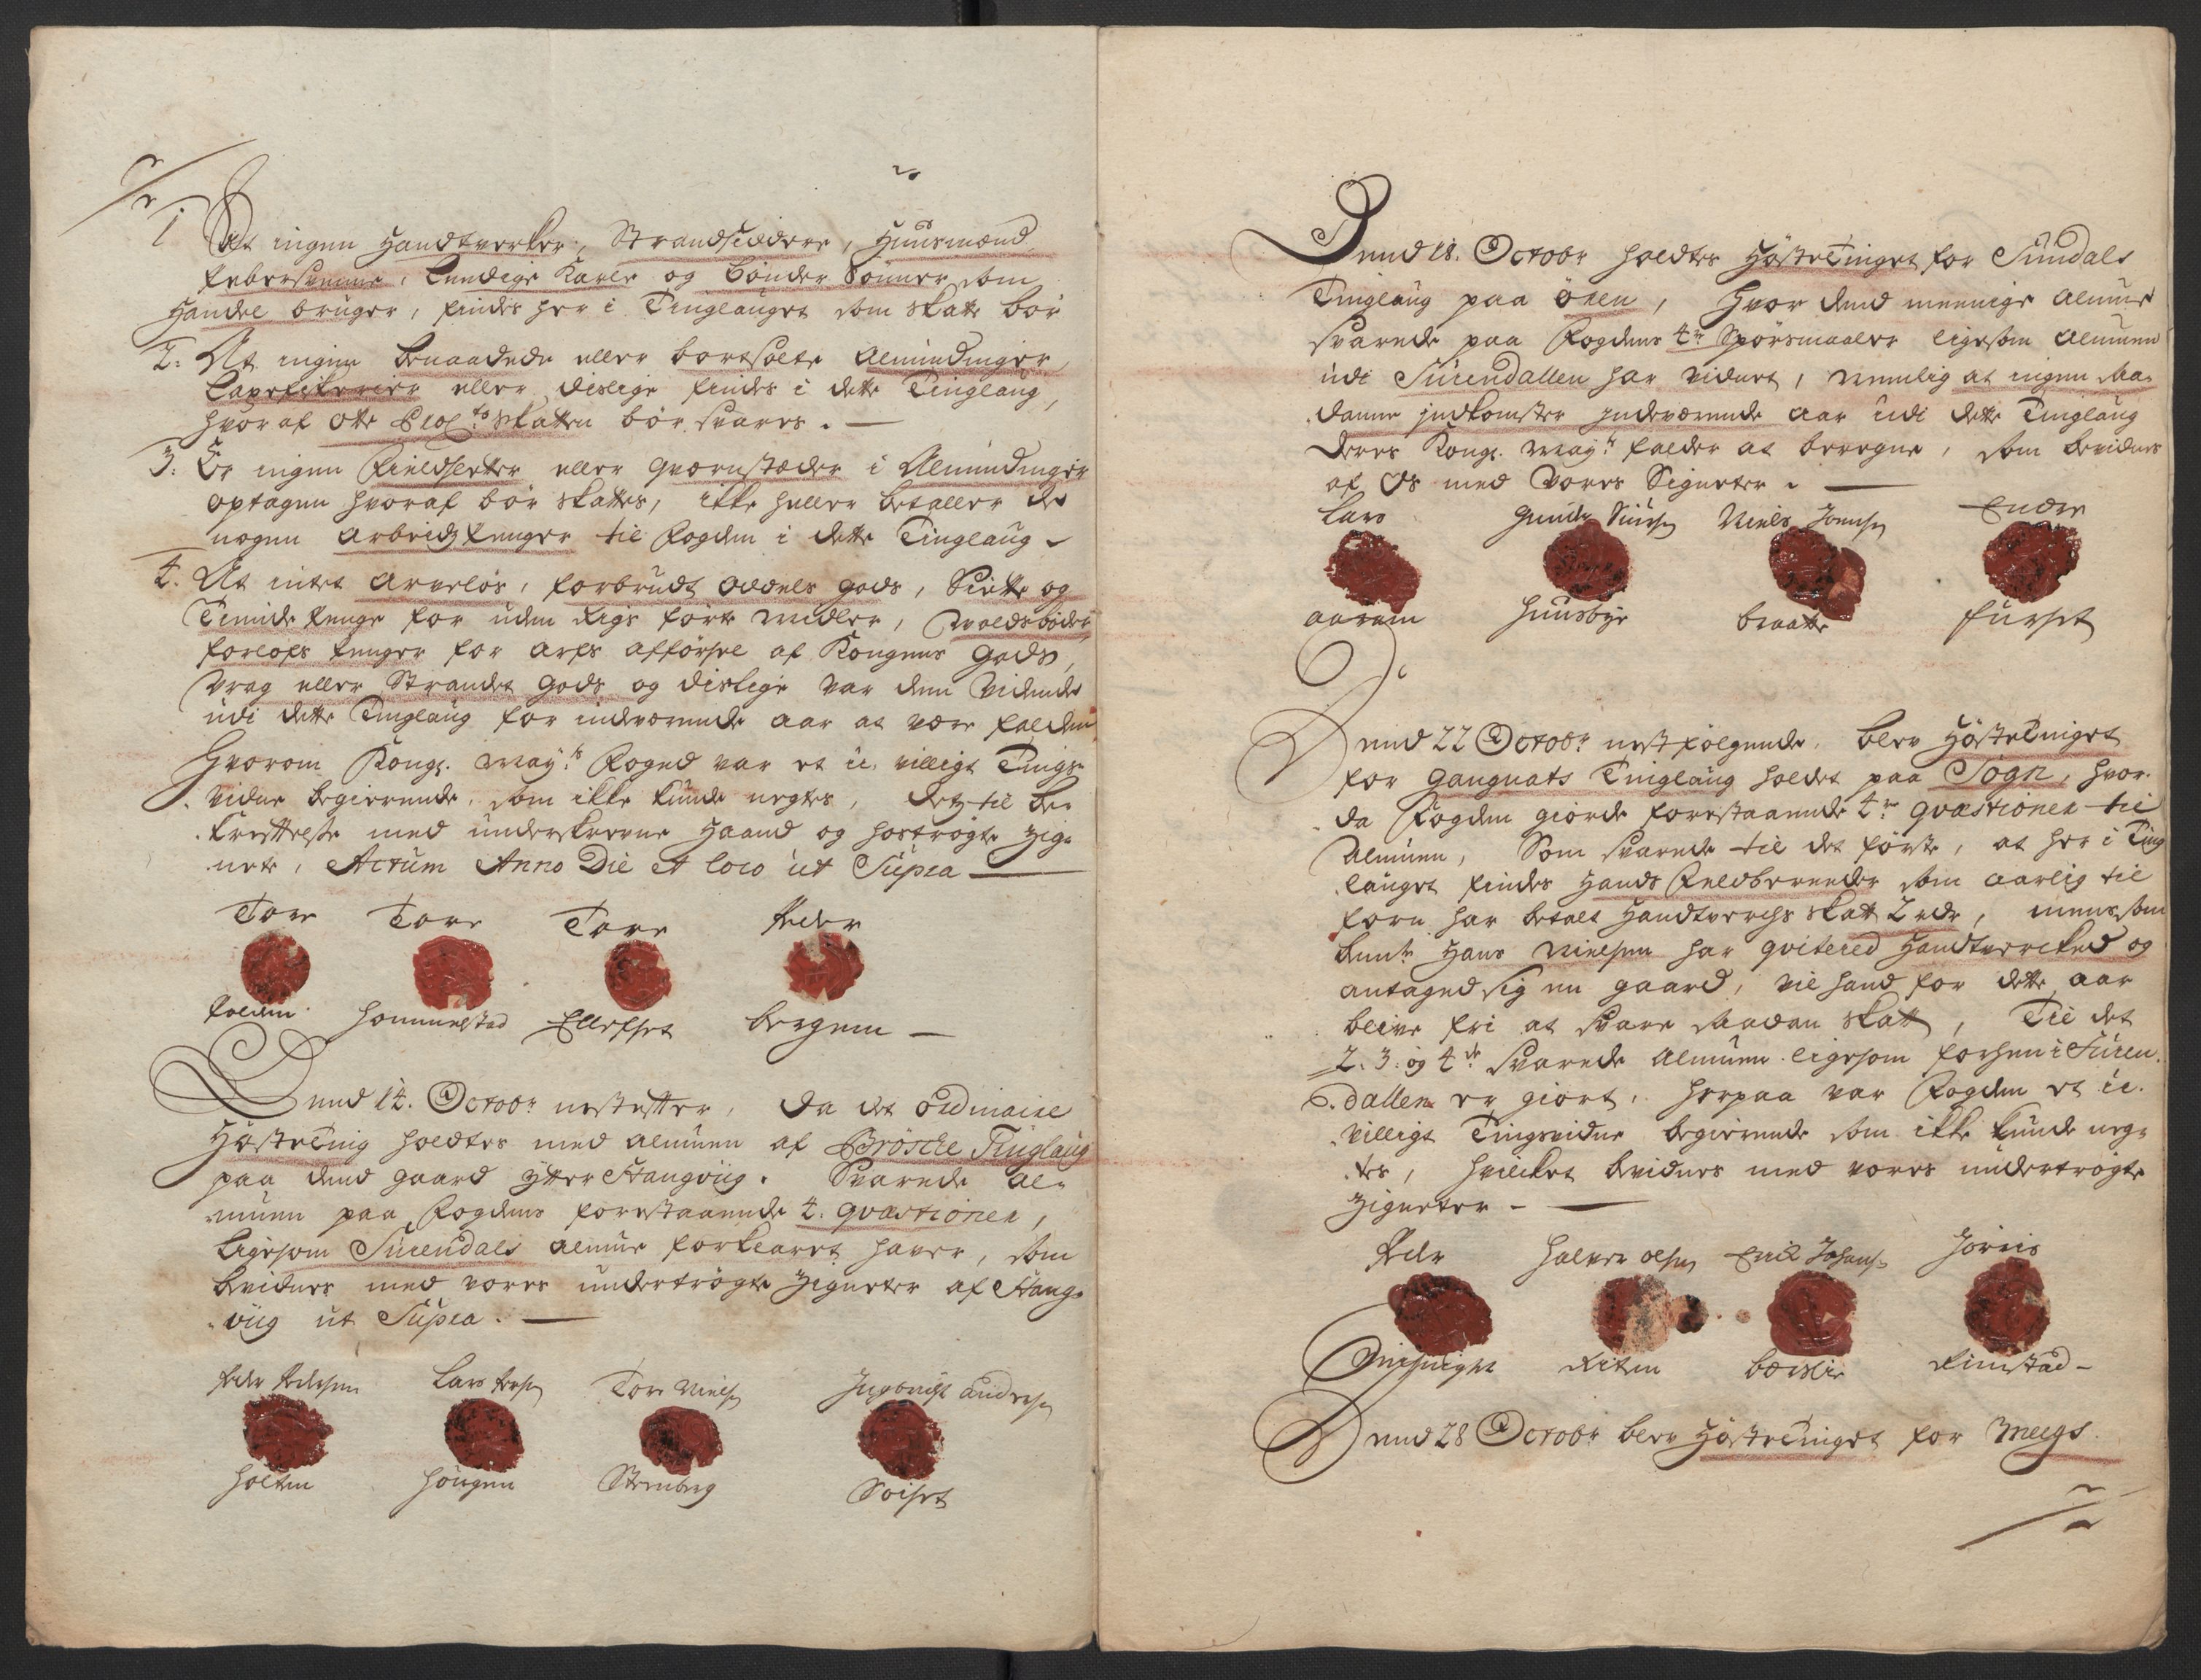 1 At ingen Handtverker, Strandsiddere, Huusmænd
Pebersvenne, Leedige Karle og Bönder Sönner som
Handel bruger, findes her i Tinglauget som skatte bör
2: At ingen benaadede eller bortsolte Almindinger,
Laxefiskerier eller dislige findes i dette Tinglaug,
hvoraf otte Proc.to skatten bör svares. —
3: Er ingen Fieldsetter eller Qværnstæder i Almindinger
optagen hvoraf bör skattes, ikke heller betaller de
nogen arbeidz penger til Fogden i dette Tinglaug
4. At intet arvelös, forbrudt Oddels gods, Siette og
Tiende penge for uden Rigs förte Midler, Voldsböder
forlofs penger for Arfs afförsel af Kongens gods,
Vrag eller Strandet gods og dislige var dem Vidende
udi dette Tinglaug for indeværende aar at være falden
Hvorom Kongl. May.ts Foged var et u-villigt Tings-
vidne begierende, som ikke kunde negtes, dets til be-
kreftelse med underskrevne Haand og hoströgte Zig-
nete, Actum Anno Die et loco ut Supra —
Tore Tore Tore Peder
Folden Hommelstad Ellefset Bergem —
Dend 14. Octobr nestefter, da det ordinaire
Hösteting holdtes med almuen af Bröske Tinglaug
paa dend gaard Ytter Stangviig. Svarede al-
muen paa Fogdens forestaaende 4. qvæstioner,
ligesom Surendals almue forklaret haver, som
bevidnes med vores undertrögte Zigneter af Stang-
viig ut Supra. —
Peder Pedersen Lars Tore Niels Ingebrigt Andersen
Holten Höugen Stenberg Soiset
Dend 18. Octobr holdtes Höstetinget for Sundals
Tinglaug paa Ören, hvor dend meenige almue
svarede paa Fogdens 4re Spörsmaaler ligesom almuen
udi Surendallen har vidnet, nemlig at ingen saa-
danne jndkomster jndeværende aar udi dette Tinglaug
deres Kongl. May.ts falder at beregne, som bevidnes
af Os med Vores Signeter. —
Lars Niels Joensen Endre
Huusbye Braatte Furset
Dend 22 Octobr nestfölgende, blev Höstetinget
for Gangnats Tinglaug holdet paa Sogn, hvor-
da Fogden giorde forestaaende 4re qvæstioner til
Almuen, Som svarede til det förste, at her i Ting
lauget findes Hands Feldbereder som aarlig til
forn har betalt Handtverchs skatt 2 rdr, mens som
bemte Hans Nielsen har qvitered Handtverked og
antaged sig en gaard, vil hand for dette aar
blive fri at svare saadan skatt, Til det
2. 3. og 4de svarede almuen ligesom forhen i Suren-
dallen er giort, herpaa var Fogden et u-
villigt Tingsvidne begierende som ikke kunde neg-
tes, hvilcket bevidnes med vores undertrögte
Zigneter —
Peder Halver Olsen Erick Johans. Jörris
Riten Rimstad —
Dend 28 Octobr blev Höstetinget for Meegs